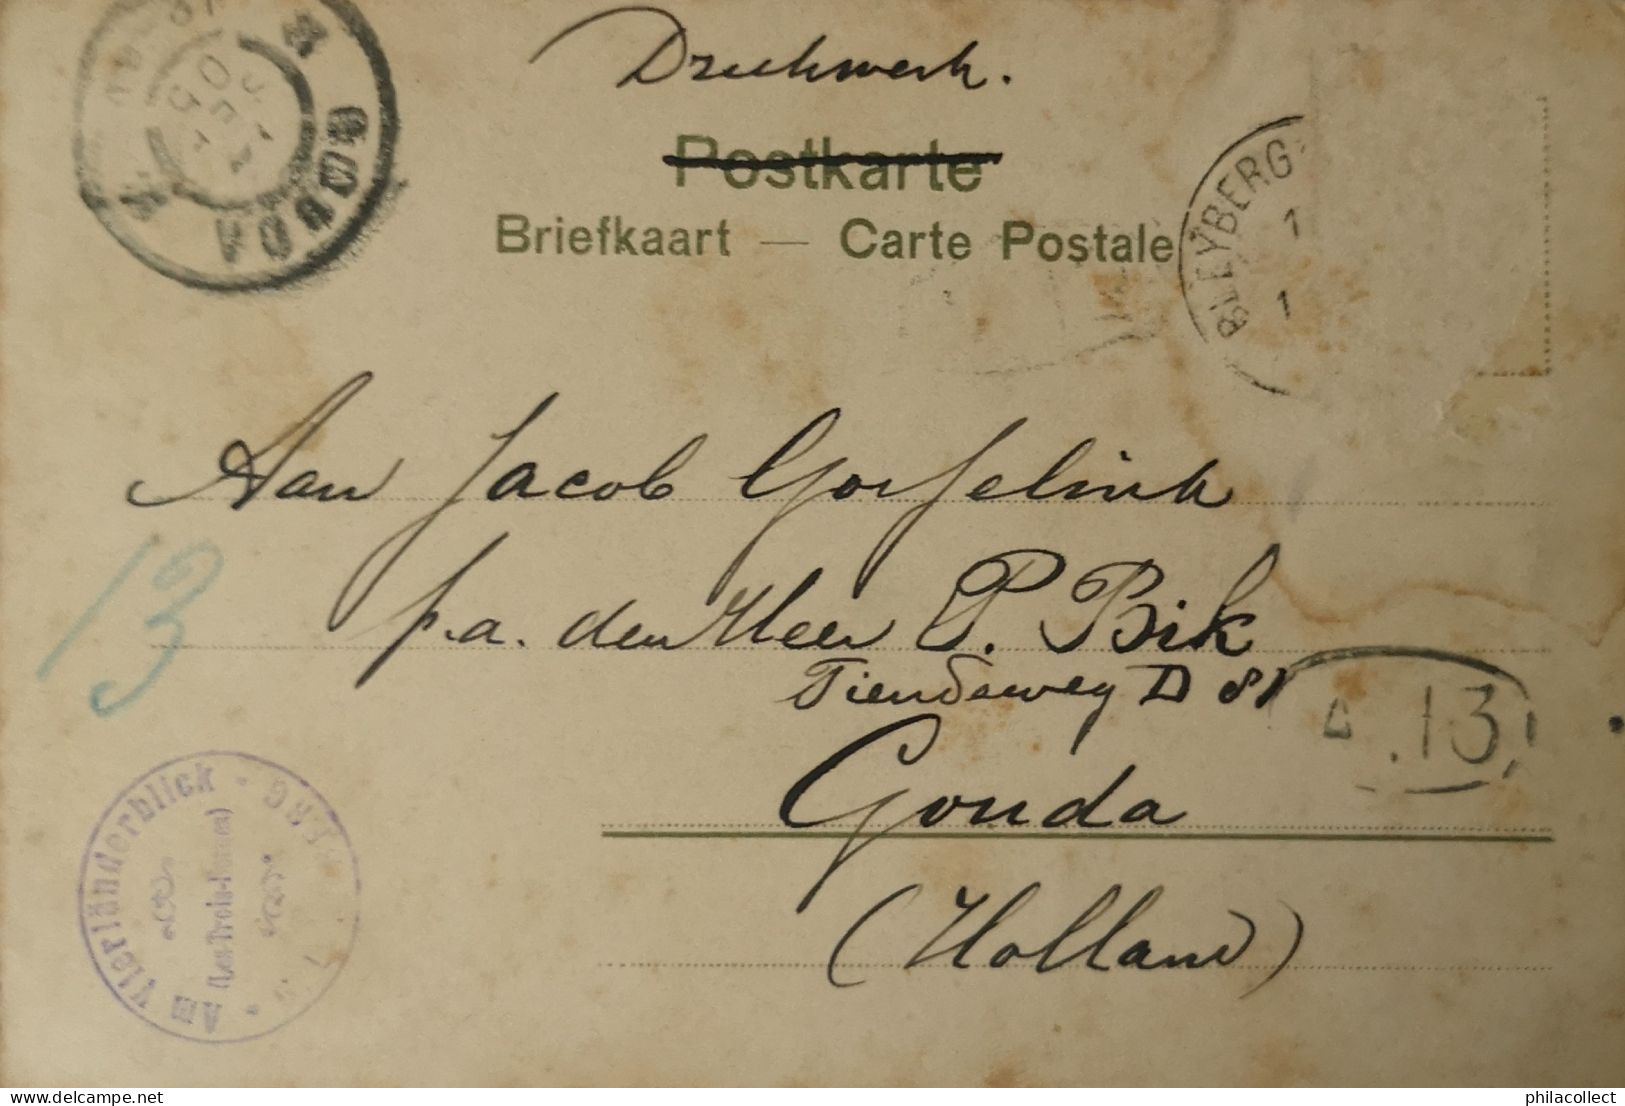 Drukwerk.
Postkarte
Briefkaart — Carte Postale
GOUDA
BLEYBERG
1
1
Aan Jacob Gosselink
p.a. den Heer P. Bik
Tiendeweg D 81
Gouda
(Holland)
13
13
Am Vierländerblick
(Les Trois-Bornes)
philacollect